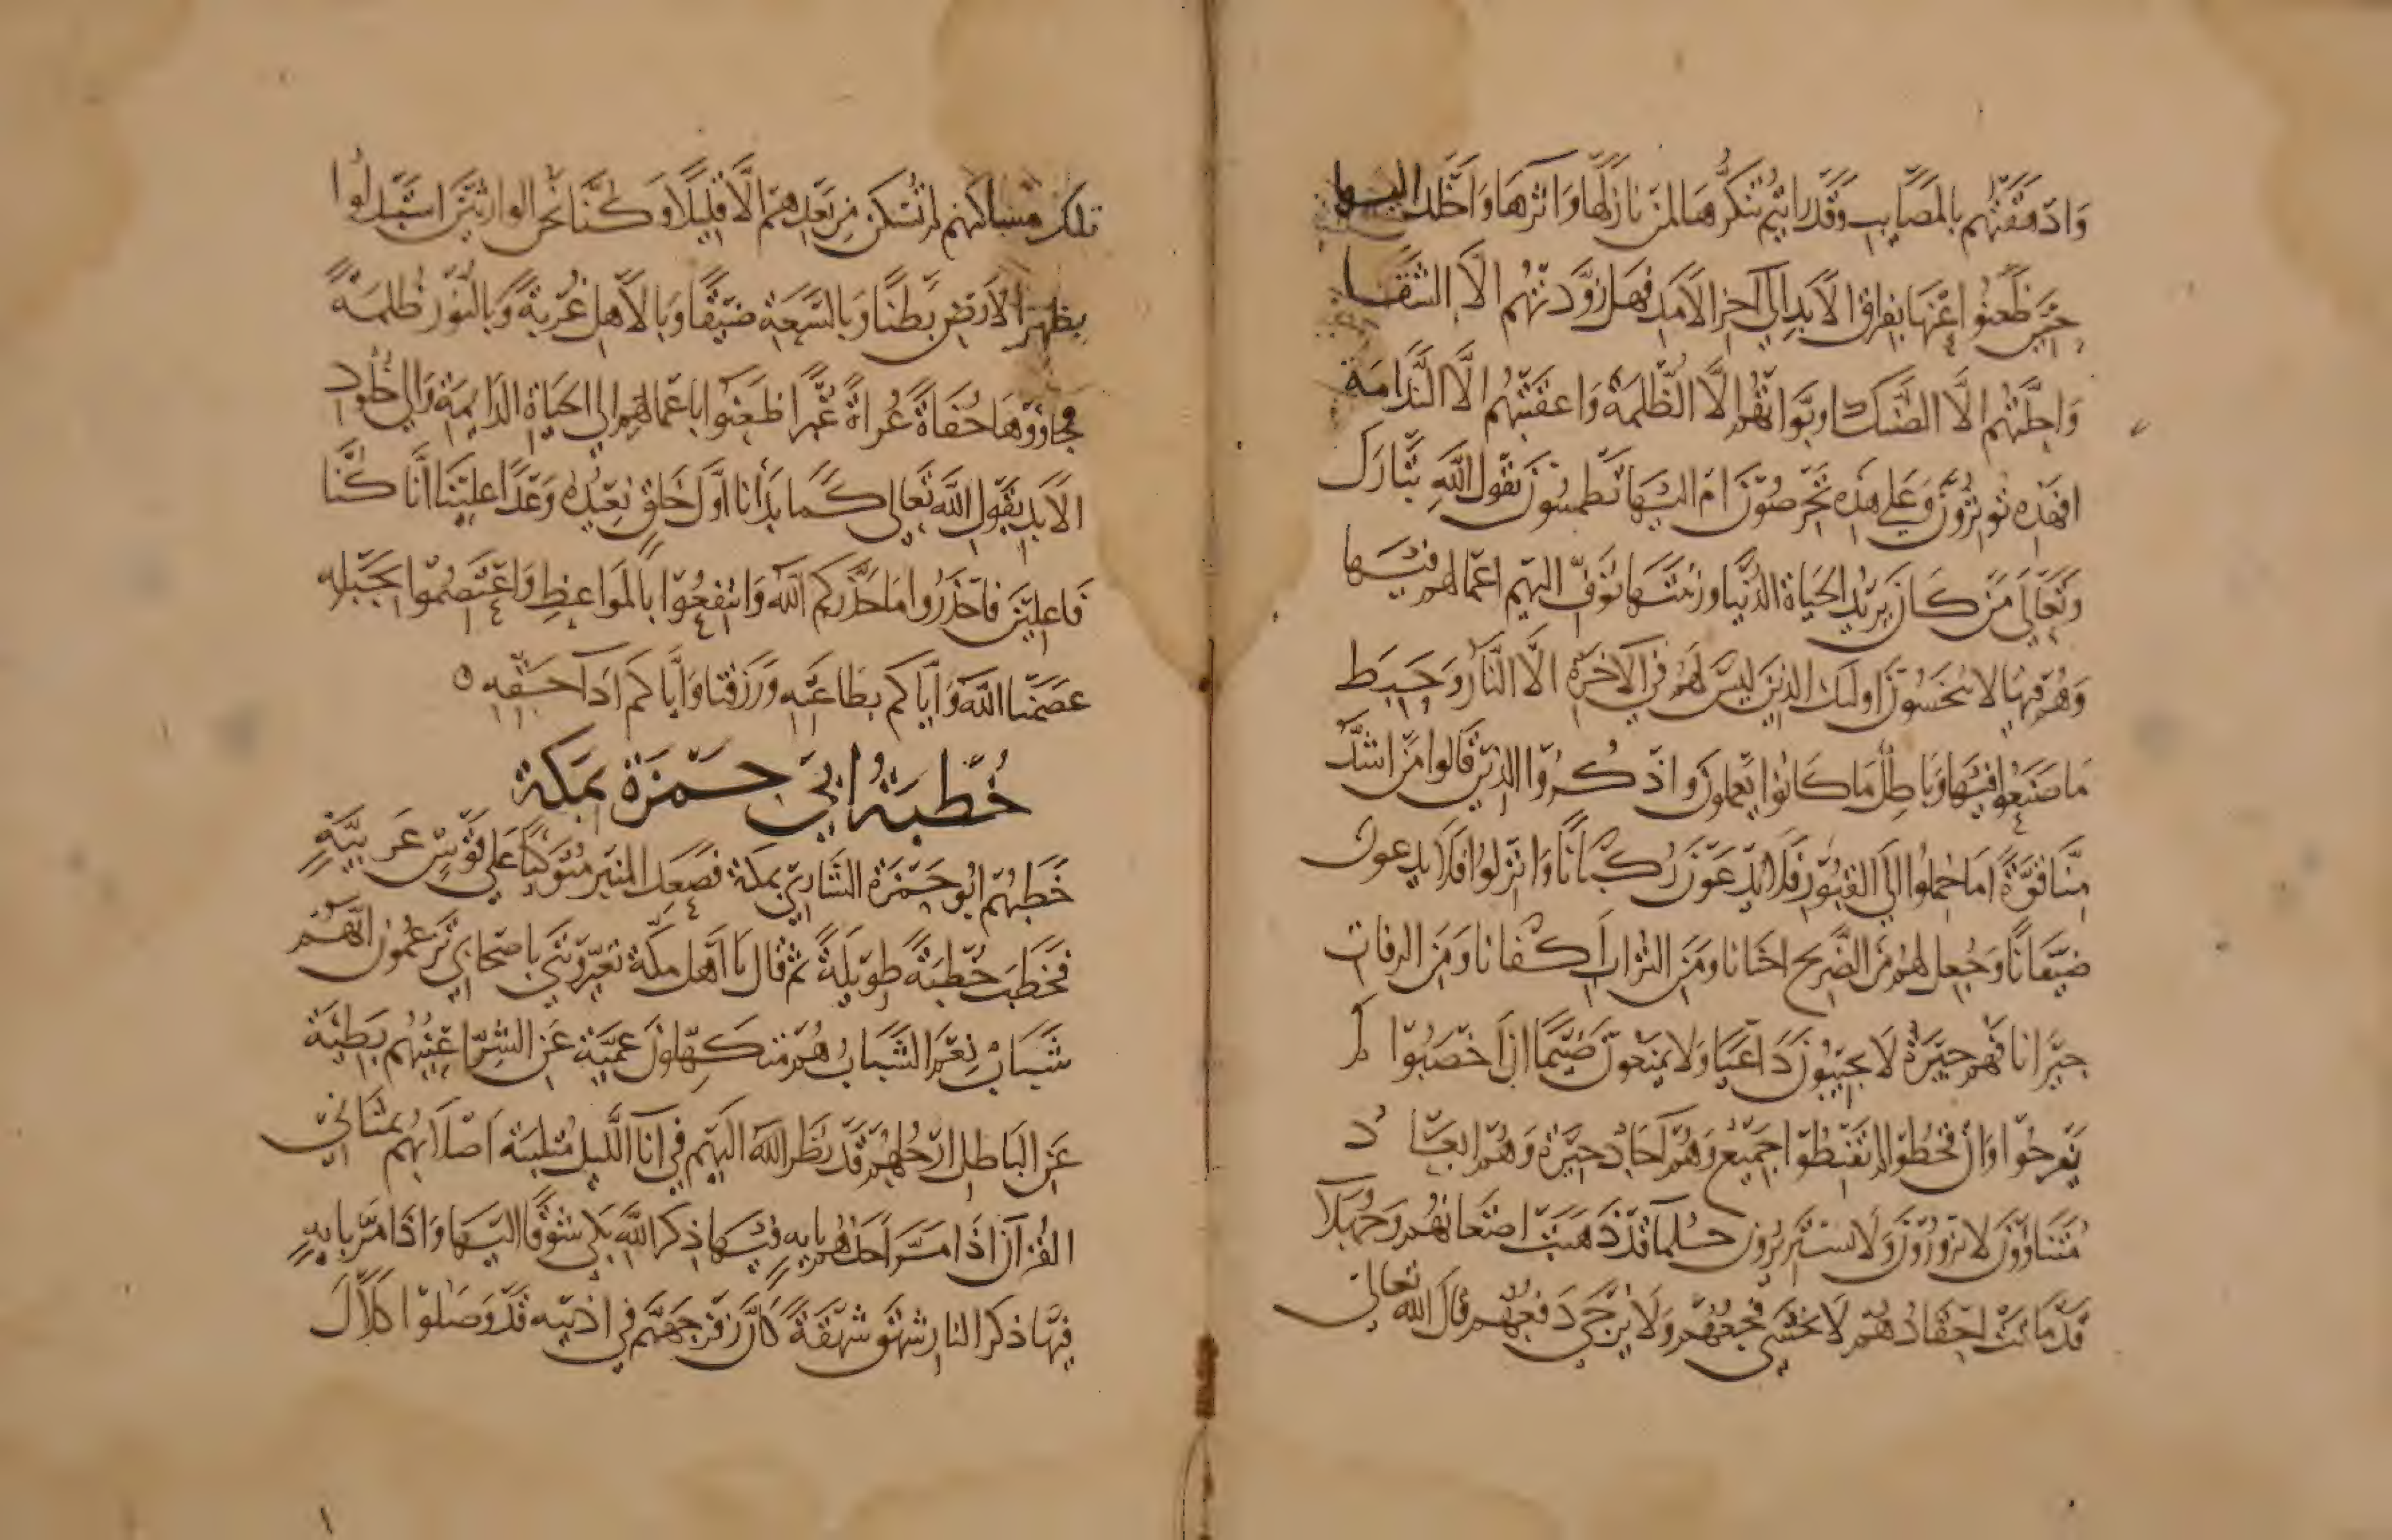 وَادهَقَتْهم بالمَصَايب وَقَدرايتم تنَكُّرهَا لمن نازَلَها وَاثرهَا وَاخلَد اليها
حَتى ظَعَنُوا عَنهَا بفراق الابَد الي آخر الامَد فهَل زَوَّدتهُم الا الشقا
وَاحلَّتهُم الا الضنك اونوَّرتْ لهُم الا الظلمَة وَاعقبَتهُم الا النَّدَامَة
افهَذه توثرُونَ وَعَلي هذه تحرصُونَ ام اليهَا تطمئنون يَقول الله تبَارَك
وَتعَالَى مَنْ كَانَ يريْد الحيَاة الدُّنيا وزينتهَا نُوَفّ اليْهم اعمَالهم فيْهَا
وَهُم فيهَا لا يبخَسُونَ اولئك الذينَ ليْسَ لهُم في الآخرَةِ الا النَّارُ وَحَبِطَ
مَا صَنَعُوا فيْهَا وَبَاطِلٌ مَا كَانُوا يَعملونَ وَاذكُروا الذينَ قالوا مَنْ اشدُّ
مِنَّا قُوَّةً امَا حُملُوا الي القبُور فَلا يدعَوْنَ رُكبَانًا وَانزلُوا فلا يدعون
ضيْفَانًا وَجُعل لهُم منَ الضَّريح اخنانا ومنَ التراب اكفَانا وَمنَ الرفات
جيْرَانا فهم جيْرَة لَا يجيْبُونَ دَاعيًا وَلا يمنعُونَ ضَيْمًا ان اخصَبُوا لم
يَفرحُوا وَان قحطُوا لم يَقنطُوا جَميْع وَهُم آحَاد جيْرَة وَهُم ابعَاد
مُتَناؤونَ لا يزورُونَ وَلَا يستَزيرُونَ حُلمَا قد ذَهَبَت اضغَانهُم وَجُهَلا
قد مَاتتْ احقَادُهُم لَا يخشَى فجعُهُم وَلَا يرْجَى دَفعُهُم قَالَ الله تعالى
تلك مسَاكنهم لم تُسْكن مِن بَعدِهم الَّا قليْلًا وَكُنَّا نحنُ الوَارثينَ استبدَلوا
بظهرِ الارضِ بَطنًا وَبالسَّعَة ضَيْقًا وَبالاهل غُربَةً وَبالنُّور ظُلمَةً
فجاؤوهَا حُفَاةً عُراةً غُبرًا ظَعَنُوا باعمَالهم الي الحيَاة الدَّايمَة وَالي خُلُود
الابَد يَقول الله تعَالى كَمَا بَدَأنا اوَّلَ خَلق نعِيْدُهُ وَعْدًا عليْنَا انَّا كُنَّا
فاعليْنَ فاحذَرُوا مَا حَذَّرَكم الله وَانتفعُوا بالموَاعظ وَاعْتَصمُوا بحَبله
عصَمَنا الله وَايَّاكم بطَاعَتِه وَرَزَقنا وَايَّاكم ادَا حَقّه ۵
خُطبَةُ ابي حَمْزَة بمَكة
خَطبَهُم ابُو حَمْزَة الشَّاري بمَكة فصَعِدَ المنبر مُتوَكِّئًا علي قَوْسٍ عَرَبيَّةٍ
فخَطَبَ خُطبَةً طويْلَةً ثم قَال يَا اهل مَكّة تعيّرونَني باصحَابي تزعمُون انّهُم
شَبَابٌ نِعْمَ الشَّبَابُ هُم مكتهلون عميَّة عَن الشرّ اعيُنهُم بَطيْئَة
عَن البَاطل ارجُلهُم قَدْ نَظَر الله اليْهم في آنا الليْل مُنثنيَة اصْلابُهُم بمَثَاني
القُرآن اذَا مَرَّ احَدهُم باية فيْهَا ذِكر الله بَكى شَوْقًا اليْهَا وَاذَا مَرَّ بايةٍ
فيْهَا ذكر النار شهَقَ شَهْقَةً كَانَّ زفيْر جَهَنَّم في اذنيْه قَد وَصَلوا كَلَالَ